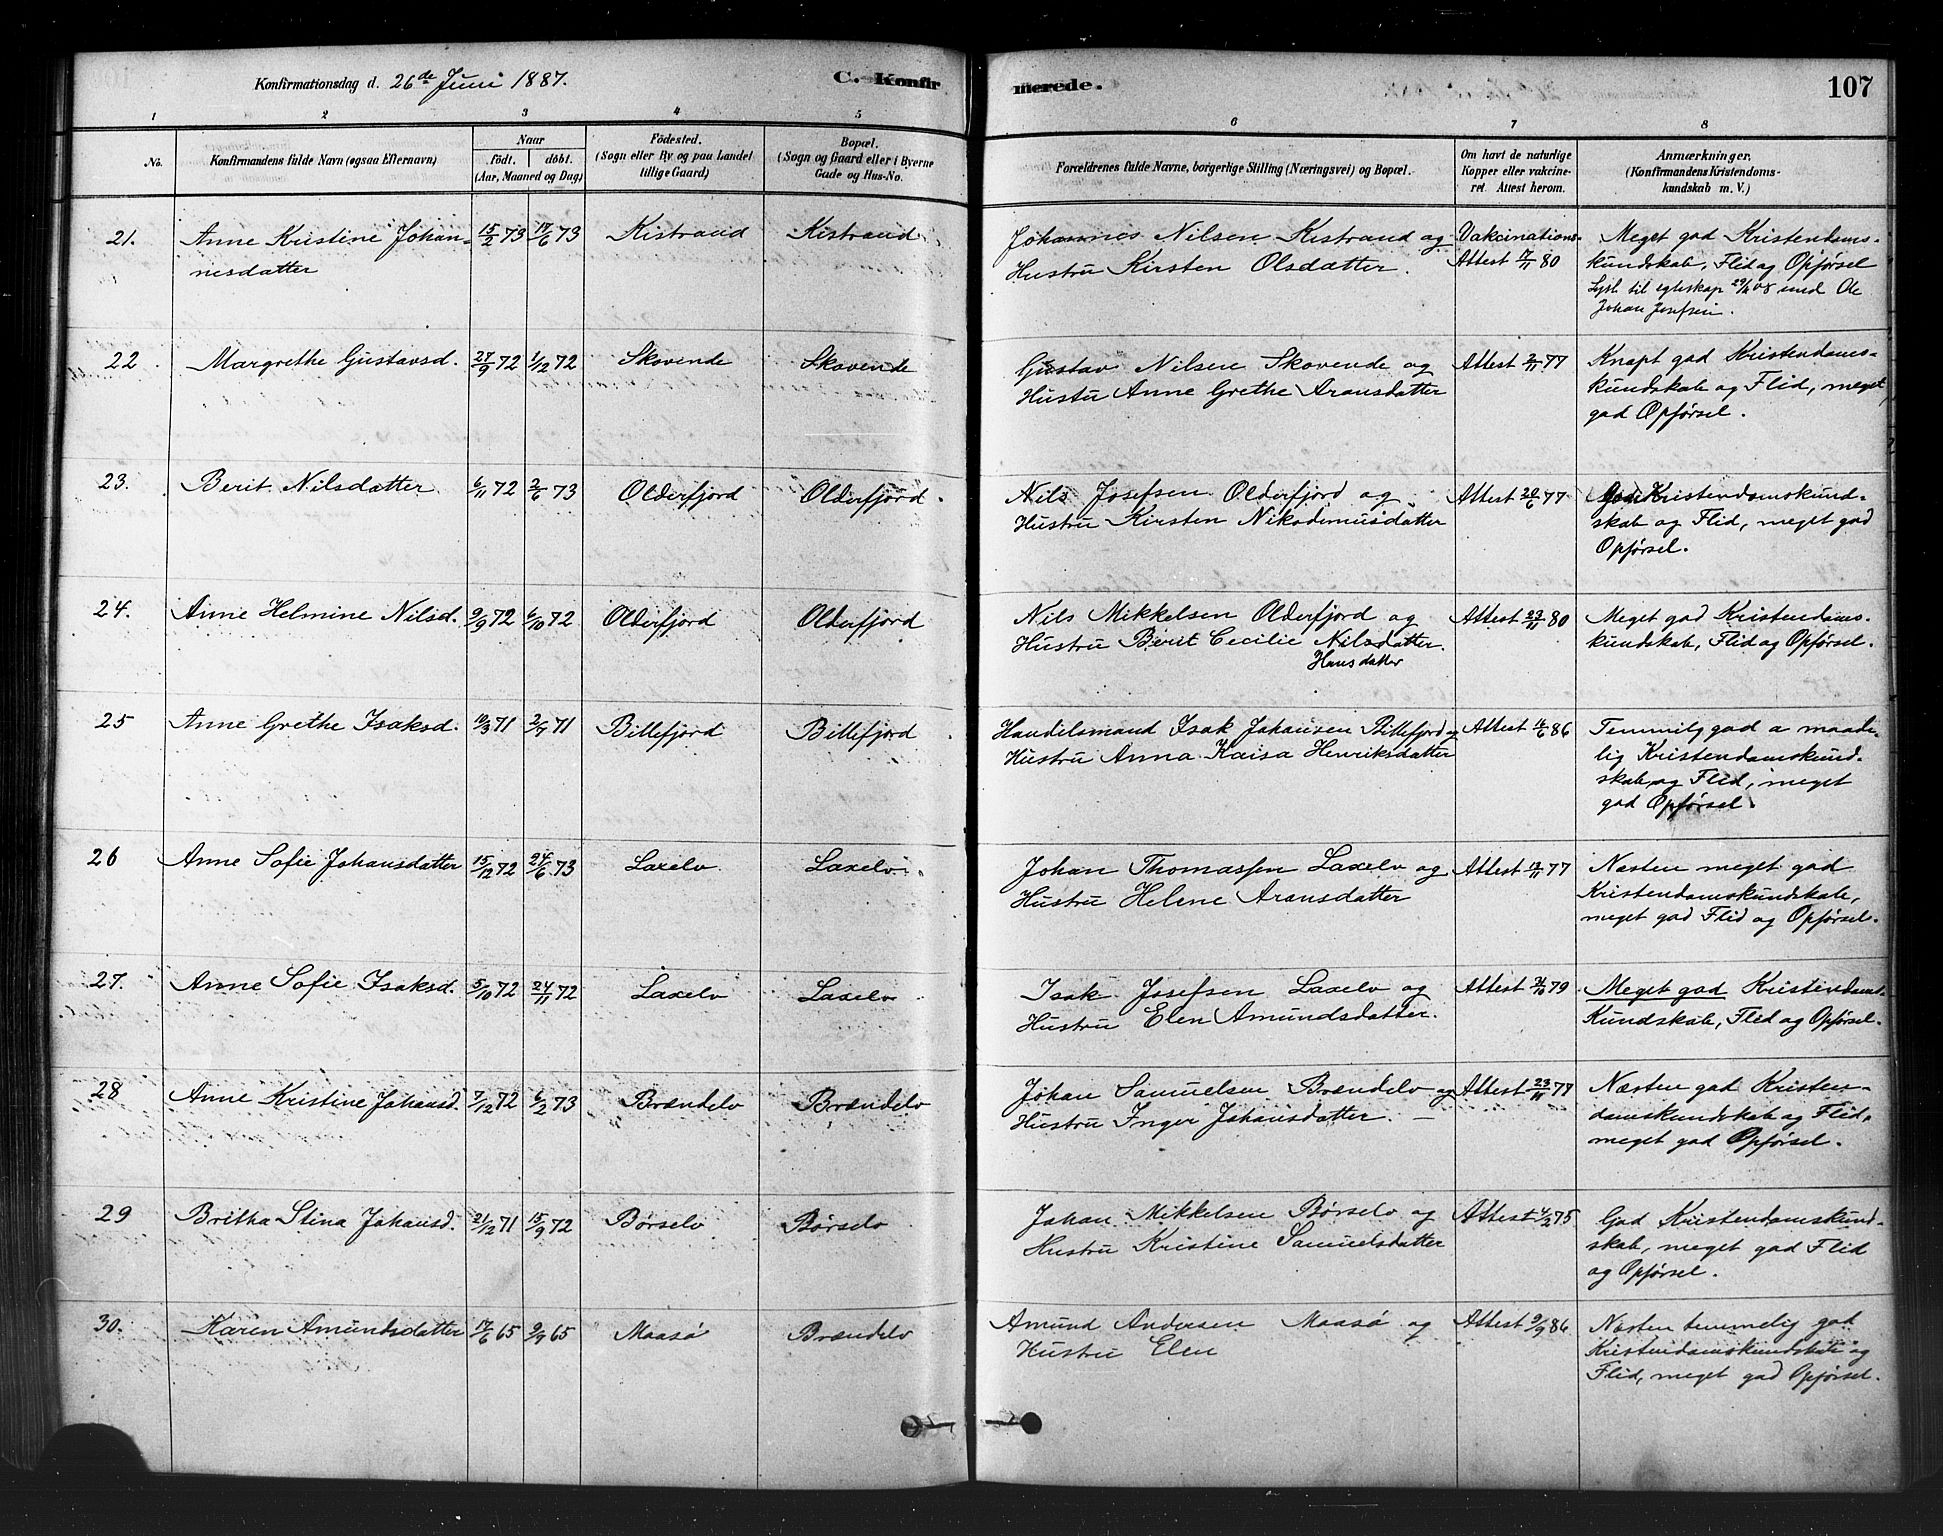 Konfirmationsdag d. 26de Juni 1887.
C. Konfirmerede.
107
1 2 3 4 5 6 7 8
No.
Konfirmandens fulde Navn (ogsaa Efternavn)
Naar
födt. döbt.
(Aar, Maaned og Dag)
Födested.
(Sogn eller By og paa Landet
tillige Gaard)
Bopæl.
(Sogn og Gaard eller i Byerne
Gade og Hus-No.
Forældrenes fulde Navne, borgerlige Stilling (Næringsvei) og Bopæl.
Om havt de naturlige
Kopper eller vakcine-
ret. Attest herom.
Anmærkninger.
(Konfirmandens Kristendoms-
kundskab m. V.)
21. Anne Kristine Johan- 15/2 73 17/6 73 Kistrand Kistrand Johannes Nilsen Kistrand og Vakcinations- Meget god Kristendoms-
nesdatter Hustru Kirsten Olsdatter. Attest 17/11 80 kundskab, Flid og Opførsel
Lyst til egteskap 29/11 08 med Ole
Johan Josefsen.
22. Margrethe Gustavsd. 27/9 72 1/12 72 Skovende Skovende Gustav Nilsen Skovende og Attest 2/11 77 Knapt god Kristendoms-
Hustu Anne Grethe Aronsdatter kundskab og Flid, meget
god Opførsel.
23. Berit Nilsdatter 6/11 72 2/6 73 Olderfjord Olderfjord. Nils Josefsen Olderfjord og Attest 20/6 77 God Kristendomskund-
Hustru Kirsten Nikodemusdatter skab og Flid, meget god
Opførsel.
24. Anne Helmine Nilsd. 9/9 72 6/10 72 Olderfjord Olderfjord Nils Mikkelsen Olderfjord og Attest 23/11 80 Meget god Kristendoms-
Hustru Berit Cecilie Nilsdatter. kundskab, Flid og Opførsel.
Hansdatter
25 Anne Grethe Isaksd. 10/3 71 2/7 71 Billefjord Billefjord Handelsmand Isak Johansen Billefjord og Attest 14/6 86 Temmelig god a maade-
Hustru Anna Kaisa Henriksdatter lig Kristendomskund-
skab og Flid, meget
god Opførsel.
26 Anne Sofie Johansdatter 15/12 72 24/6 73 Laxelv Laxelv. Johan Thomassen Laxelv og Attest 13/11 77 Næsten meget god
Hustru Helene Aronsdatter Kristendomskundskab,
meget god Flid og Opførsel.
27. Anne Sofie Isaksd. 5/10 72 24/11 72 Laxelv Laxelv Isak Josefsen Laxelv og Attest 79 Meget god Kristendoms-
Hustru Elen Amundsdatter. Kundskab, Flid og Opførsel.
28 Anne Kristine Johansd. 7/12 72 6/2 73 Brændelv Brændelv Johan Samuelsen Brændelv og Attest 23/11 77 Næsten god Kristen-
Hustru Inger Johansdatter. domskundskab og Flid,
meget god Opførsel.
29 Britha Stina Johansd. 21/12 71 15/9 72 Børselv Børselv Johan Mikkelsen Børselv og Attest 4/2 75 God Kristendomskund-
Hustru Kristine Samuelsdatter skab, meget god Flid
og Opførsel.
30. Karen Amundsdatter 17/6 65 9/9 65 Maasö Brændelv Amund Andersen Maasö og Attest 9/9 86 Næsten temmelig god
Hustru Elen Kristendomskundskab og
Flid, meget god Opførsel.